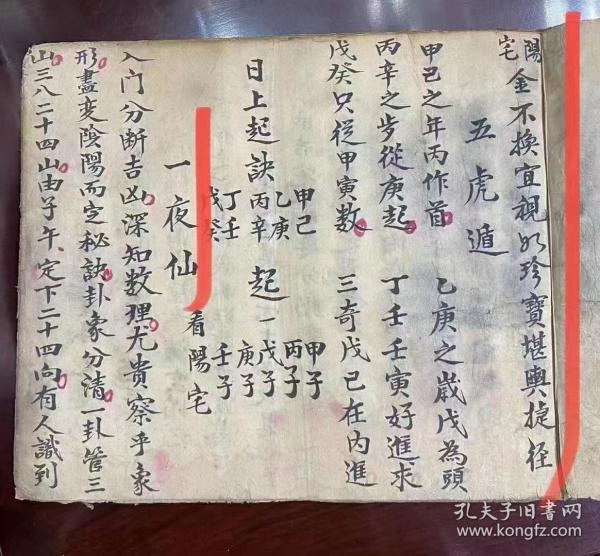 陽宅金不換宜視如珍寶堪輿捷径
五虎遁
甲己之年丙作首 乙庚之歲戊為頭
丙辛之步從庚起 丁壬壬寅好進求
戊癸只從甲寅数 三奇戊己在内進
日上起訣 甲己 乙庚 丙辛 丁壬 戊癸 起 甲子 丙子 戊子 庚子 壬子
一夜仙 看陽宅
入门分断吉凶深知数理尤贵察乎象
形盡变陰陽而定秘訣卦象分清一卦管三
山三八二十四山由子午定下二十四向有人識到
孔夫子旧书网
www.kongfz.com